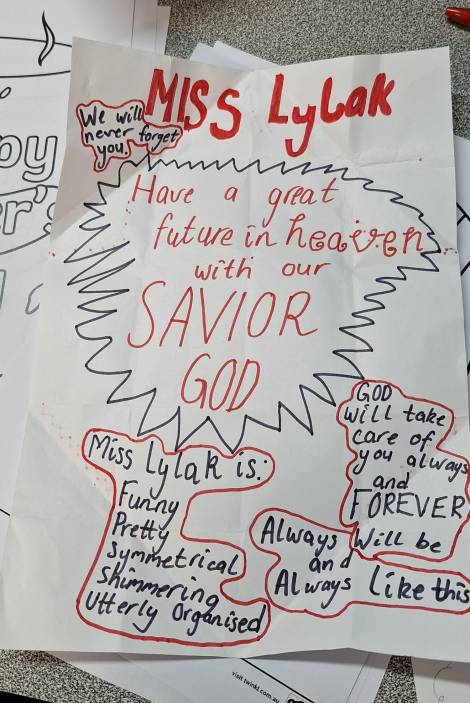 MISS Lylak
We will
never forget
you,
Have a great
future in heaven
with our
SAVIOR
GOD
GOD
will take
care of
you always
and
FOREVER
Miss Lylak is:
Funny
Pretty
symmetrical
shimmering
Utterly Organised
Always Will be
and
Always like this
py
r's
visit twinkl.com.au